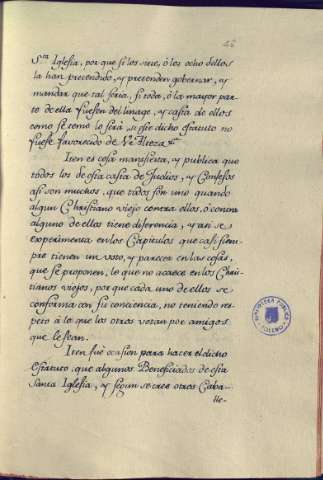 Sta. Iglesia, por que si los siete, ó los ocho dellos
la han pretendido, y pretenden gobernar, y
mandar que tal seria, si toda, ó la mayor par-
te de ella fuesen del linage, y casta de ellos
como se teme lo será si este dicho estatuto no
fuese favorecido de Vª Alteza.
Iten es cosa manifiesta, y publica que
todos los de esta casta de Judios, y Confesos
asi son muchos, que todos son uno quando
algun Christiano viejo contra ellos, ó contra
alguno de ellos tiene diferencia, y asi se
experimenta en los Capitulos que casi siem
pre tienen un voto, y parecer en las cosas,
que se proponen, lo que no acaece en los Chris-
tianos viejos, por que cada uno de ellos se
conforma con su conciencia, no teniendo res-
peto á lo que los otros votan por amigos
que le sean.
Iten fué ocasion para hacer el dicho
Estatuto que algunos Beneficiados de esta
Santa Iglesia, y segun se cree otros Caba-
lle-
BIBLIOTECA PUBLICA
TOLEDO